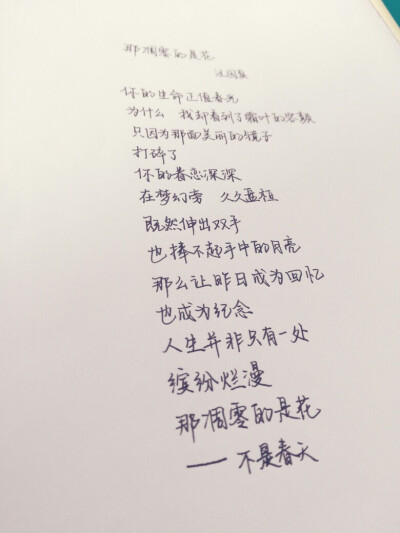 那凋零的是花
汪国真
你的生命正值春光
为什么 我却看到了霜叶的容颜
只因为那面美丽的镜子
打碎了
你的眷恋深深
在梦幻旁 久久盘桓
既然伸出双手
也捧不起手中的月亮
那么让昨日成为回忆
也成为纪念
人生并非只有一处
缤纷烂漫
那凋零的是花
——不是春天